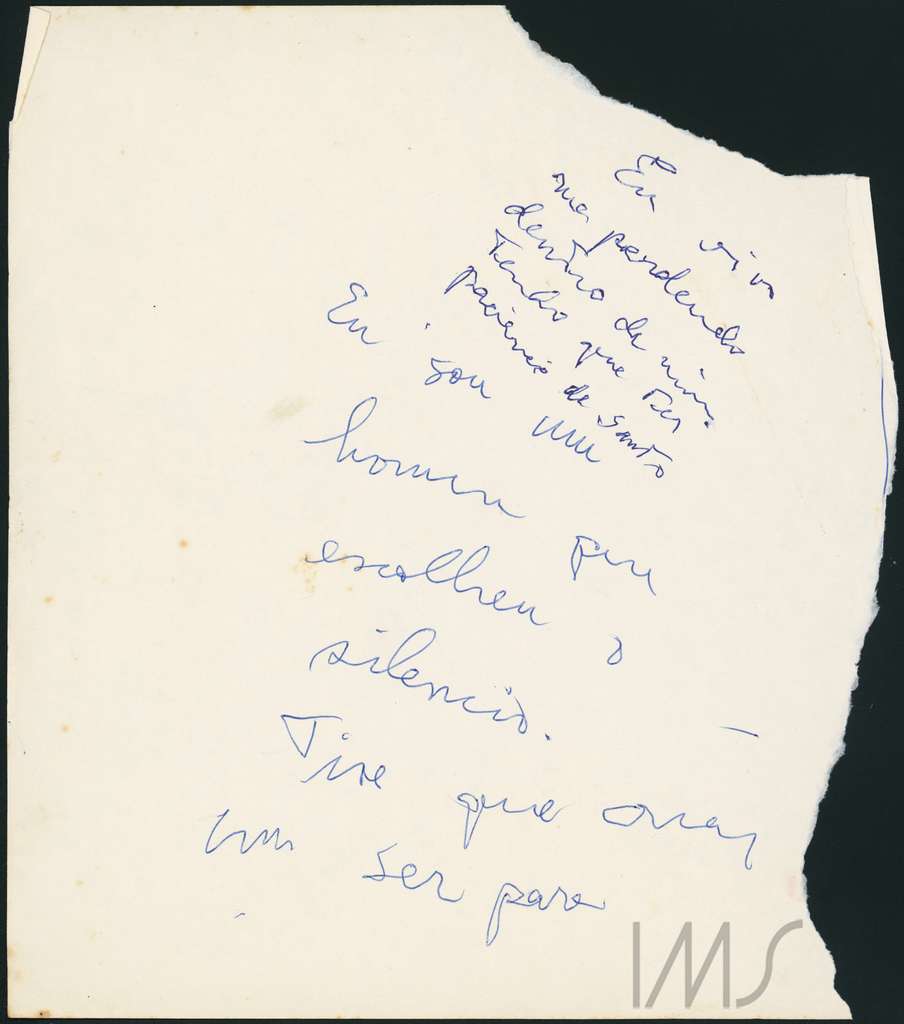 Eu vivo
me perdendo
dentro de mim.
Tenho que ter
paciência de santo
Eu sou um
homem que
escolheu o
silencio.
Tive que criar
um ser para
IMS